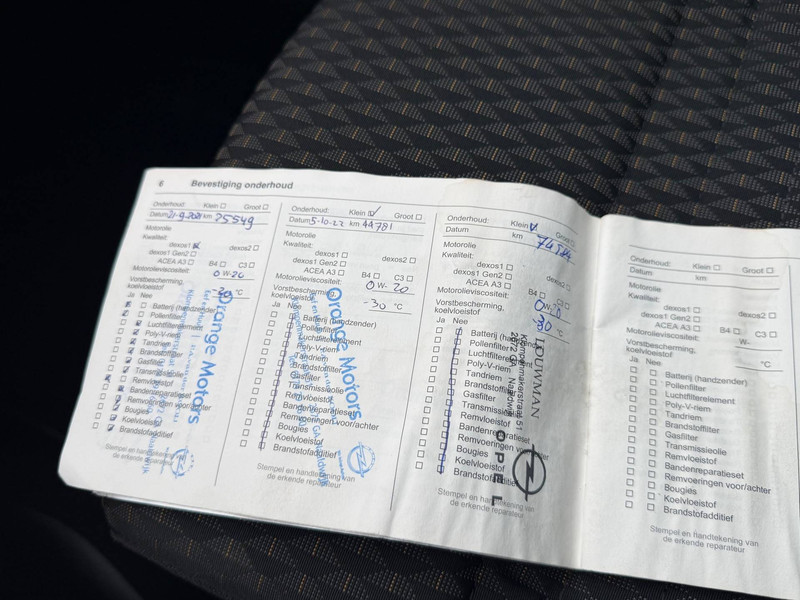 6 Bevestiging onderhoud
Onderhoud: Klein Groot
Datum 21-9-2021 km 25549
Motorolie
Kwaliteit:
dexos1 dexos2
dexos1 Gen2
ACEA A3 B4 C3
Motorolieviscositeit: 0 W- 20
Vorstbescherming,
koelvloeistof -30 °C
Ja Nee
Batterij (handzender)
Pollenfilter
Luchtfilterelement
Poly-V-riem
Tandriem
Brandstoffilter
Gasfilter
Transmissieolie
Remvloeistof
Bandenreparatieset
Remvoeringen voor/achter
Bougies
Koelvloeistof
Brandstofadditief
Stempel en handtekening van
de erkende reparateur
Orange Motors
Onderhoud: Klein Groot
Datum 5-10-22 km 44781
Motorolie
Kwaliteit:
dexos1 dexos2
dexos1 Gen2
ACEA A3 B4 C3
Motorolieviscositeit: 0 W- 20
Vorstbescherming,
koelvloeistof -30 °C
Ja Nee
Batterij (handzender)
Pollenfilter
Luchtfilterelement
Poly-V-riem
Tandriem
Brandstoffilter
Gasfilter
Transmissieolie
Remvloeistof
Bandenreparatieset
Remvoeringen voor/achter
Bougies
Koelvloeistof
Brandstofadditief
Stempel en handtekening van
de erkende reparateur
Orange Motors
Onderhoud: Klein Groot
Datum km
Motorolie
Kwaliteit:
dexos1 dexos2
dexos1 Gen2
ACEA A3 B4 C3
Motorolieviscositeit: 0 W-
Vorstbescherming,
koelvloeistof -30 °C
Ja Nee
Batterij (handzender)
Pollenfilter
Luchtfilterelement
Poly-V-riem
Tandriem
Brandstoffilter
Gasfilter
Transmissieolie
Remvloeistof
Bandenreparatieset
Remvoeringen voor/achter
Bougies
Koelvloeistof
Brandstofadditief
Stempel en handtekening van
de erkende reparateur
LOUWMAN
Kompenmakerstraat 51
2672 GA Naaldwijk
OPEL
Onderhoud: Klein Groot
Datum: km
Motorolie
Kwaliteit:
dexos1 dexos2
dexos1 Gen2
ACEA A3 B4 C3
Motorolieviscositeit: W-
Vorstbescherming,
koelvloeistof °C
Ja Nee
Batterij (handzender)
Pollenfilter
Luchtfilterelement
Poly-V-riem
Tandriem
Brandstoffilter
Gasfilter
Transmissieolie
Remvloeistof
Bandenreparatieset
Remvoeringen voor/achter
Bougies
Koelvloeistof
Brandstofadditief
Stempel en handtekening van
de erkende reparateur